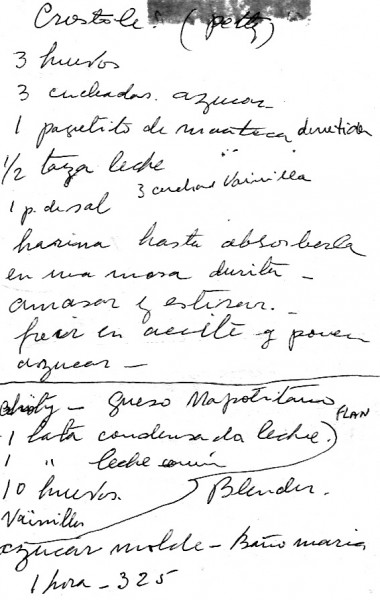 Crostole. (petty)
3 huevos
3 cucharadas. azucar
1 paquetito de manteca derretida
1/2 taza leche
3 cuchara Vainilla
1 p. de sal
harina hasta absorberla
en una masa durita -
amasar y estirar. -
freir en aceite y poner
azucar -
- Queso Napolitano
FLAN
1 lata condensada leche.
1 " leche común
10 huevos. Blender.
Vainilla
azucar molde - Baño maria
1 hora - 325